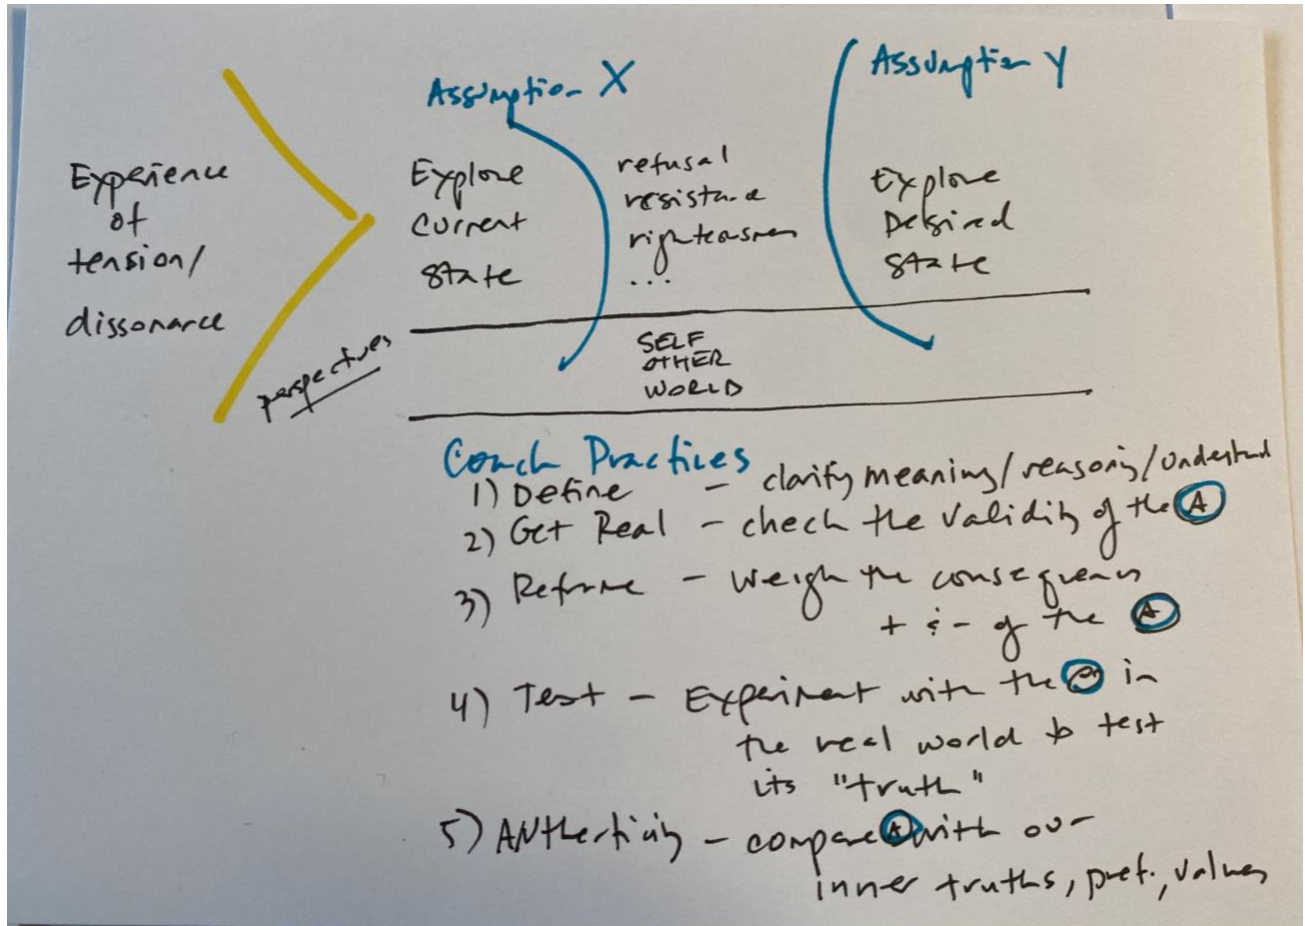 Experience
of
tension/
dissonance
Assumption X
Explore
current
state
refusal
resistance
righteousness
...
Assumption Y
Explore
Desired
state
perspectives
SELF
OTHER
WORLD
Coach Practices
1) Define - clarify meaning/reasoning/understand
2) Get Real - check the validity of the A
3) Reframe - weigh the consequences
+ & - of the A
4) Test - Experiment with the A in
the real world to test
its "truth"
5) Authenticity - compare A with our
inner truths, pref., values